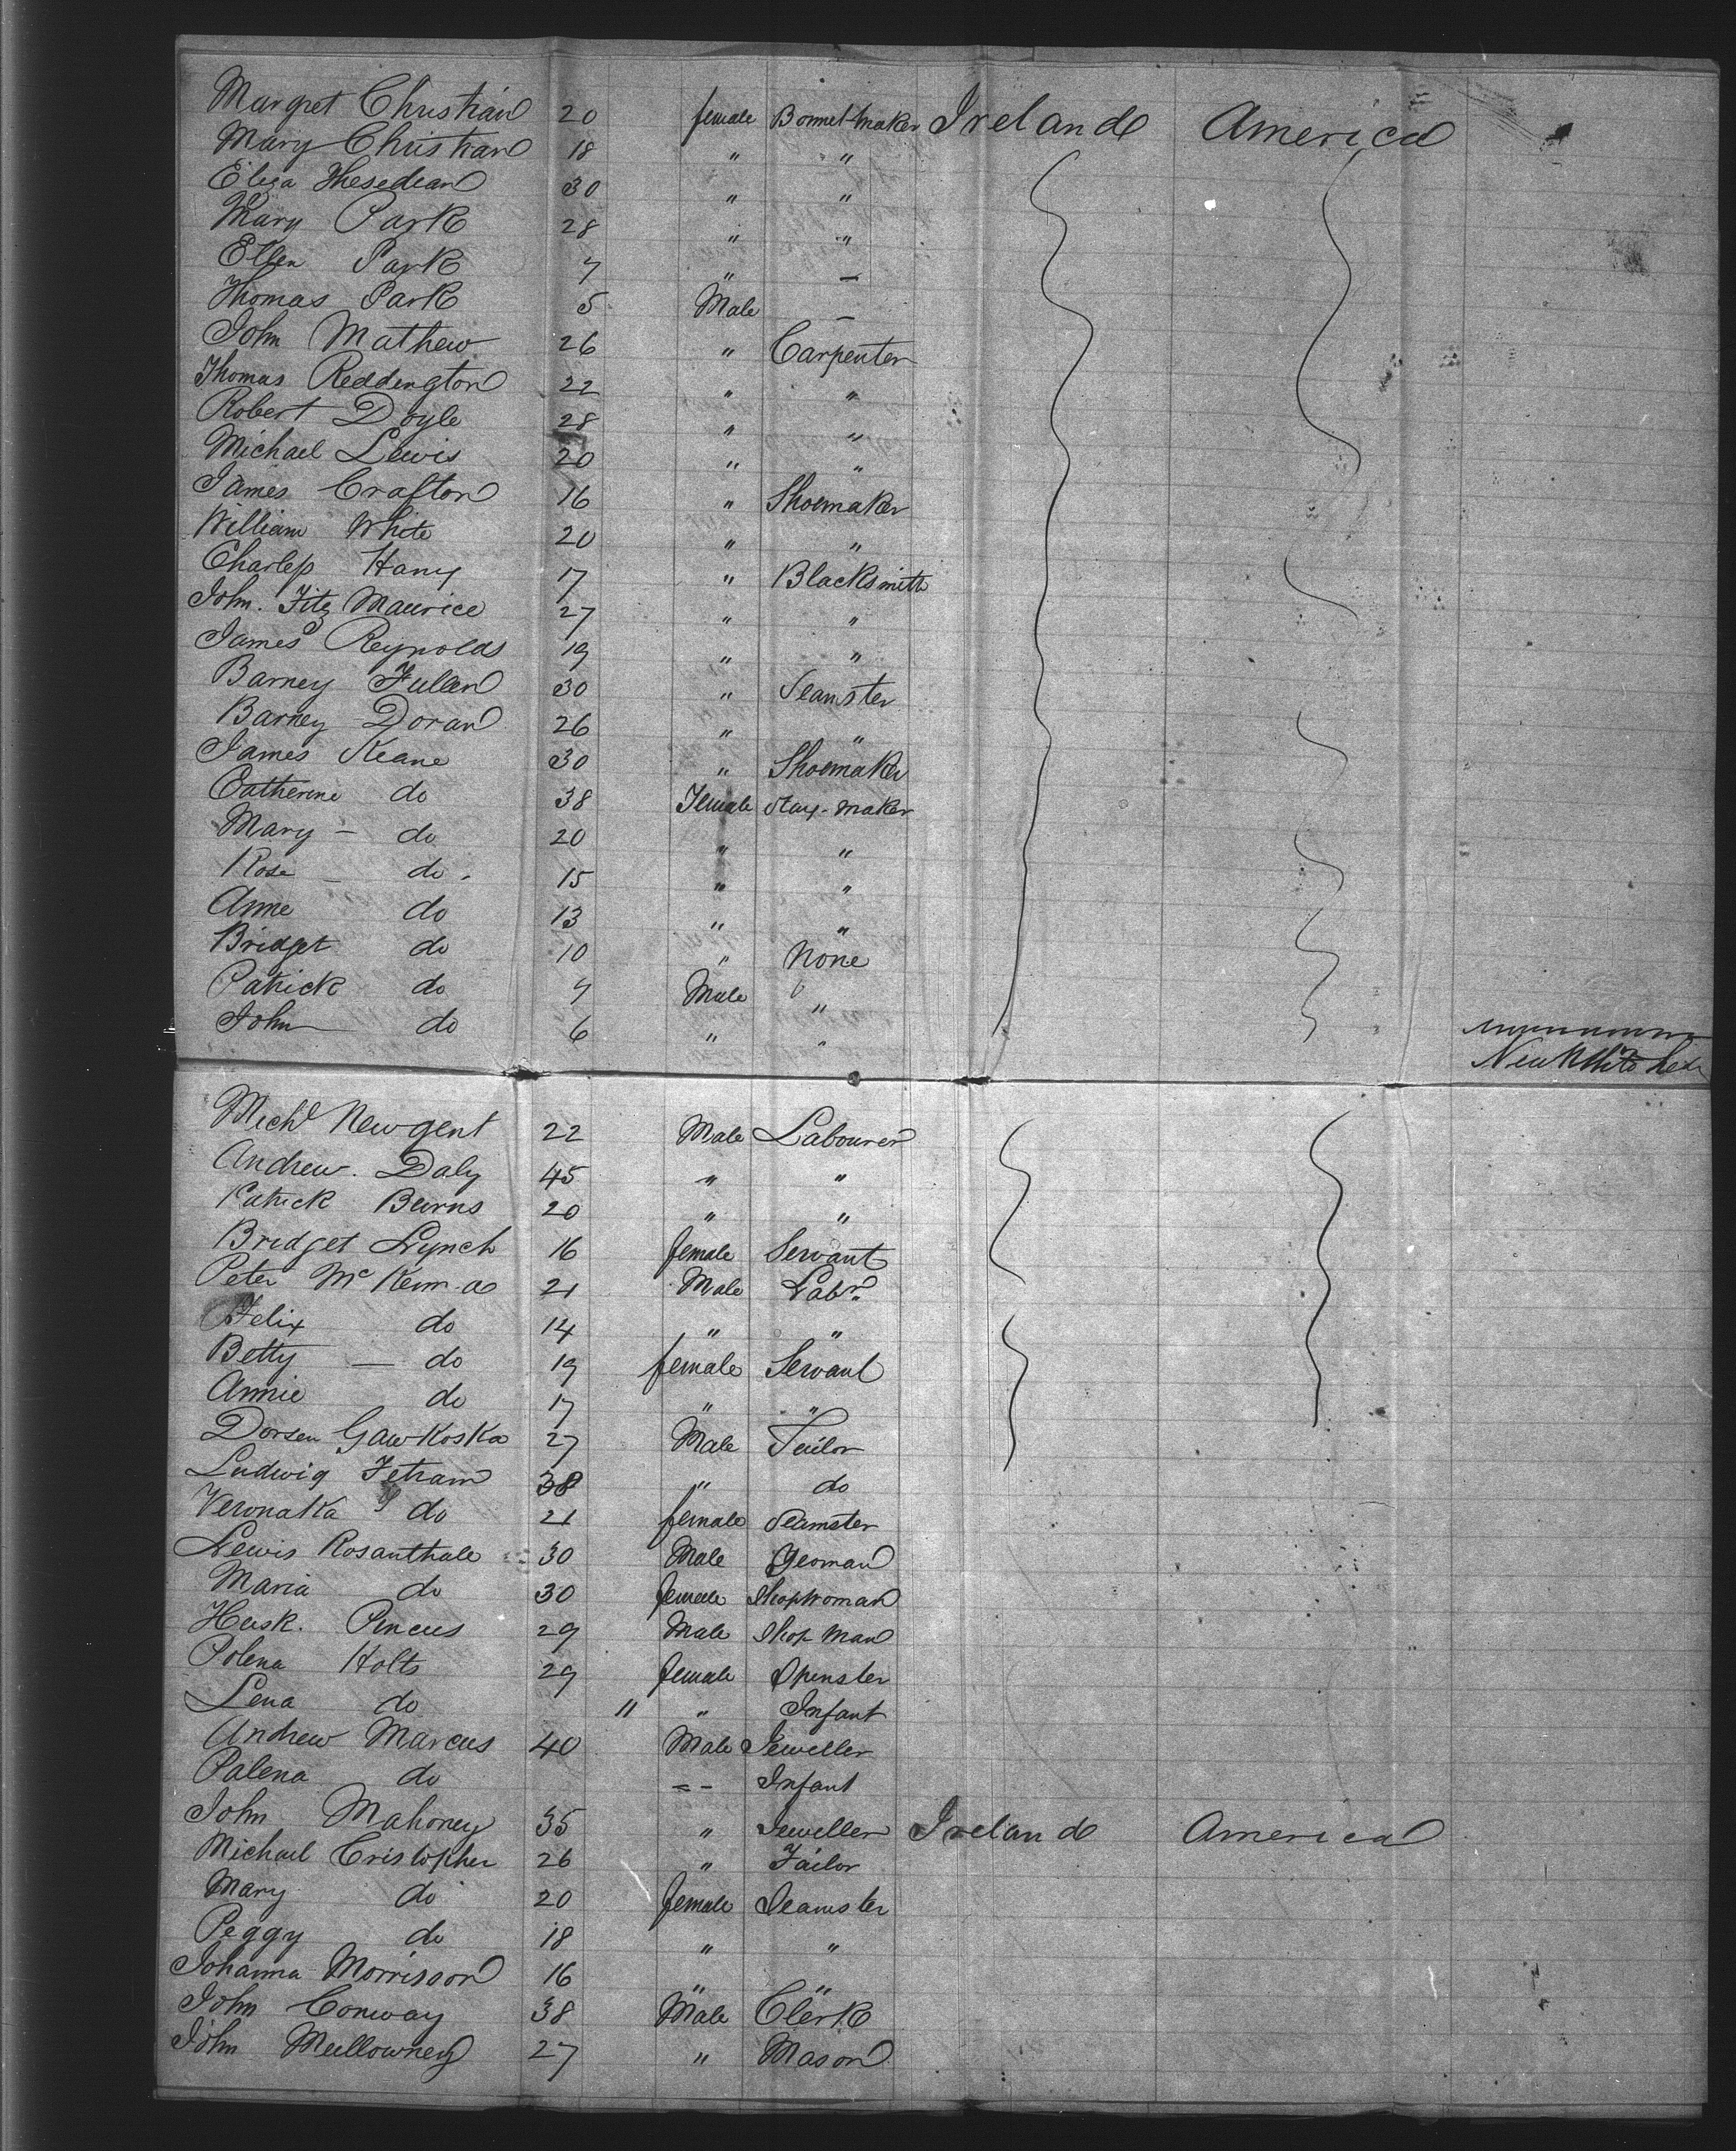 Margret Christian 20 female Bonnet-maker Ireland America
Mary Christian 18 " "
Eliza Thesedean 30 " "
Mary Park 28 " "
Ellen Park 7 " —
Thomas Park 5 Male —
John Mathew 26 " Carpenter
Thomas Reddington 22 " "
Robert Doyle 28 " "
Michael Lewis 20 " "
James Crafton 16 " Shoemaker
William White 20 " "
Charless Hany 17 " Blacksmith
John. Fitz Maurice 27 " "
James Reynolds 19 " "
Barney Fullen 30 " Seamster
Barney Doran 26 " "
James Keane 30 " Shoemaker
Catherine do 38 Female Stay-maker
Mary - do 20 " "
Rose - do 15 " "
Anne do 13 " "
Bridget do 10 " None
Patrick do 9 Male "
John do 6 " "
Michl Newgent 22 Male Labourer
Andrew. Daly 45 " "
Patrick Burns 20 " "
Bridget Lynch 16 female Servant
Peter McKenna 21 Male Labr.
Felix do 14 " "
Betty — do 19 female Servant
Annie do 17 " "
Dorsen Gawkoska 27 Male Tailor
Ludwig Fetram 38 " do
Veronaka do 21 female Seamster
Lewis Rosanthale 30 Male Yeoman
Maria do 30 female Shopwoman
Husk. Pincus 29 Male Shop Man
Polena Holts 29 female Spenster
Lena do " " Infant
Andrew Marcus 40 Male Jeweller
Palena do - - Infant
John Mahoney 35 " Jeweller Ireland America
Michael Cristopher 26 " Tailor
Mary do 20 female Seamster
Peggy do 18 " "
Johanna Morrisson 16 " "
John Conway 38 Male Clerk
John Mullowney 27 " Mason